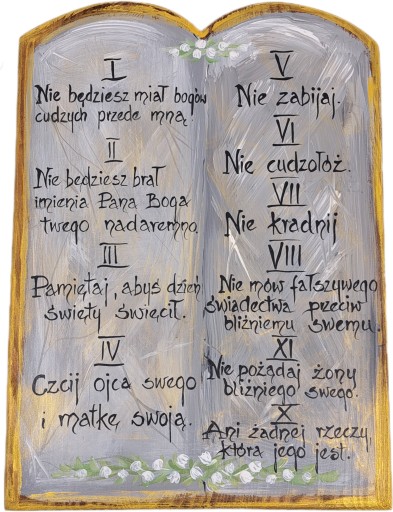 I
Nie będziesz miał bogów
cudzych przede mną
II
Nie będziesz brał
imienia Pana Boga
twego nadaremno
III
Pamiętaj, abyś dzień
święty święcił.
IV
Czcij ojca swego
i matkę swoją.
V
Nie zabijaj.
VI
Nie cudzołóż.
VII
Nie kradnij
VIII
Nie mów fałszywego
świadectwa przeciw
bliźniemu swemu.
XI
Nie pożądaj żony
bliźniego swego.
X
Ani żadnej rzeczy,
która jego jest.